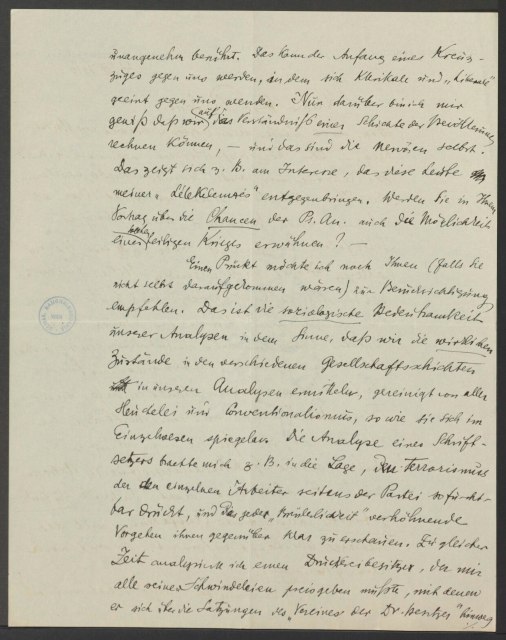 unangenehm berührt. Das kann der Anfang eines Kreuz-
zuges gegen uns werden, in dem sich Klerikale und „Liberale"
geeint gegen uns wenden. Nur darüber bin ich mir
gewiß daß wir auf das Verständniß einer Schichte der Bevölkerung
rechnen können, – und das sind die Nervösen selbst.
Das zeigt sich z. B. am Interesse, das diese Leute
meiner „ entgegenbringen. Werden Sie in Ihrem
Vortrag über die Chancen der Ps. An. auch die Möglichkeit
eines heiligen Krieges erwähnen? –
Einen Punkt möchte ich noch Ihnen (falls Sie
nicht selbst darauf gekommen wären) zur Berücksichtigung
empfehlen. Das ist die soziologische Bedeutsamkeit
unserer Analysen in dem Sinne, daß wir die wirklichen
Zustände in den verschiedenen Gesellschaftsschichten
in unseren Analysen ermitteln, gereinigt von aller
Heuchelei und Conventionalismus, so wie sie sich im
Einzelwesen spiegeln. Die Analyse eines Schrift-
setzers brachte mich z. B. in die Lage, den Terrorismus
der den einzelnen Arbeiter seitens der Partei so furcht-
bar drückt, und das jeder „Brüderlichkeit" verhöhnende
Vorgehen ihnen gegenüber klar zu erschauen. Zu gleicher
Zeit analysirte ich einen Druckereibesitzer, der mir
alle seine Schwindeleien preisgeben mußte, mit denen
er sich über die Satzungen des „Vereines der Dr. Besitzer" hinweg